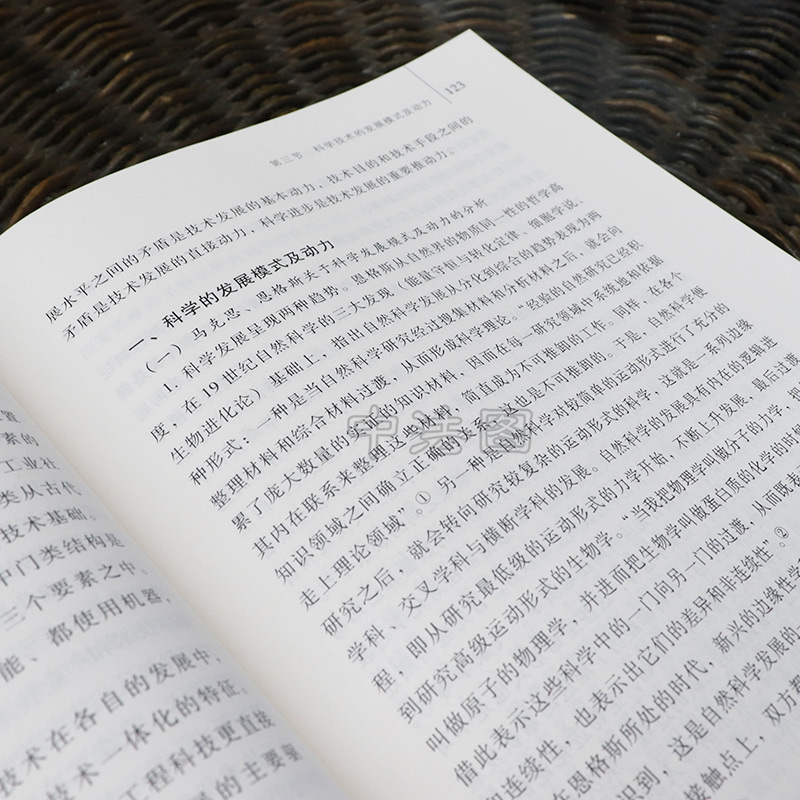 要素的
工业社
类从古代
技术基础。
中门类结构是
三个要素之中
能、都使用机器,
技术在各自的发展中,
技术一体化的特征。
工程科技更直接
的主要
123
第三节 科学技术的发展模式及动力
展水平之间的矛盾是技术发展的基本动力,技术目的和技术手段之间的
矛盾是技术发展的直接动力,科学进步是技术发展的重要推动力。
一、科学的发展模式及动力
(一)马克思、恩格斯关于科学发展模式及动力的分析
1. 科学发展呈现两种趋势。恩格斯从自然界的物质同一性的哲学高
度,在19世纪自然科学的三大发现(能量守恒与转化定律、细胞学说、
生物进化论)基础上,指出自然科学发展从分化到综合的趋势表现为两
种形式:一种是当自然科学研究经过搜集材料和分析材料之后,就会向
整理材料和综合材料过渡,从而形成科学理论。“经验的自然研究已经积
累了庞大数量的实证的知识材料,因而在每一研究领域中系统地和依据
其内在联系来整理这些材料,简直成为不可推卸的工作。同样,在各个
知识领域之间确立正确的关系,这也是不可推卸的。于是,自然科学便
走上理论领域”。① 另一种是当科学对较简单的运动形式进行了充分的
研究之后,就会转向研究较复杂的运动形式的科学,这就是一系列边缘
学科、交叉学科与横断学科的发展。自然科学的发展具有内在的逻辑进
程,即从研究最低级的运动形式的力学开始,不断上升发展,最后过渡
到研究高级运动形式的生物学。“当我把物理学叫做分子的力学,
叫做原子的物理学,并进而把生物学叫做蛋白质的化学的时候,
借此表示这些科学中的一门向另一门的过渡,从而既表
和连续性,也表示出它们的差异和非连续性”。②
在恩格斯所处的时代,新兴的边缘性学
识到,这是自然科学发展的
接触点上,双方都
中法图